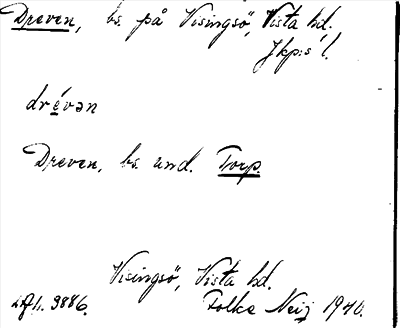 Dreven, bs. på Visingsö, Vista hd.
Jkp:s l.
drévən
Dreven, bs. und. Torp.
Visingsö, Vista hd.
9886. Folke Neij 1940.